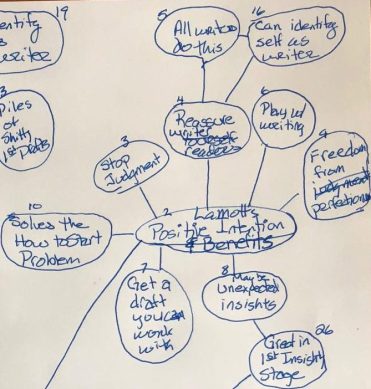 19
entify
s
writer
3
Piles
of
Shitty
1st Drafts
5
All writers
do this
16
Can identify
self as
writer
4
Reassure
writer
readers
6
Play w/
writing
9
Freedom
from
judgment
perfectionis
3
Stop
Judgment
10
Solves the
How to Start
Problem
2
Lamott's
Positive Intention
& Benefits
7
Get a
draft
you can
work
with
8
May be
unexpected
insights
26
Great in
1st Insight
Stage